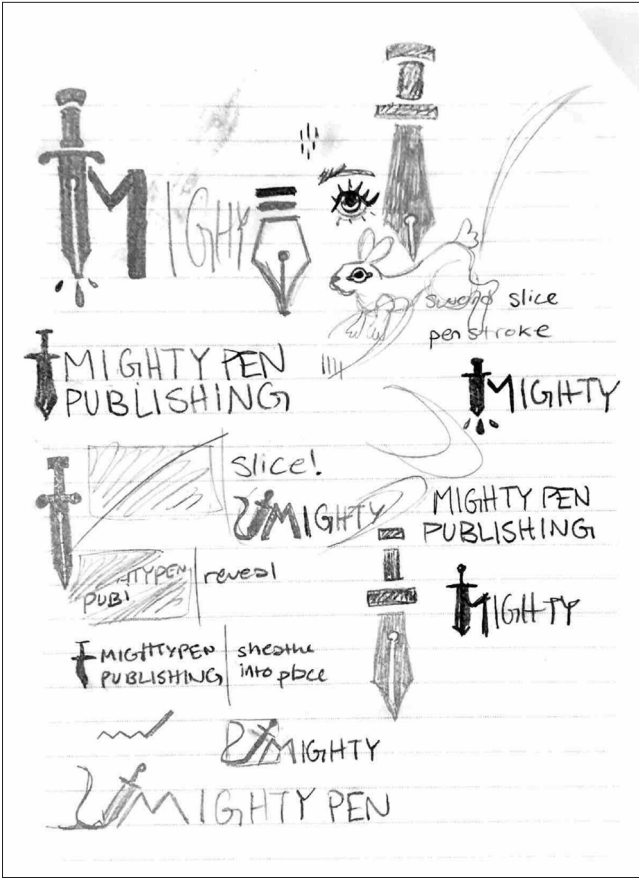 MIGHTY
sword slice
pen stroke
MIGHTY PEN
PUBLISHING
MIGHTY
slice!
MIGHTY
MIGHTY PEN
PUBLISHING
HTYPEN
PUBI
reveal
MIGHTY
MIGHTYPEN
PUBLISHING
sheathe
into place
MIGHTY
MIGHTY PEN